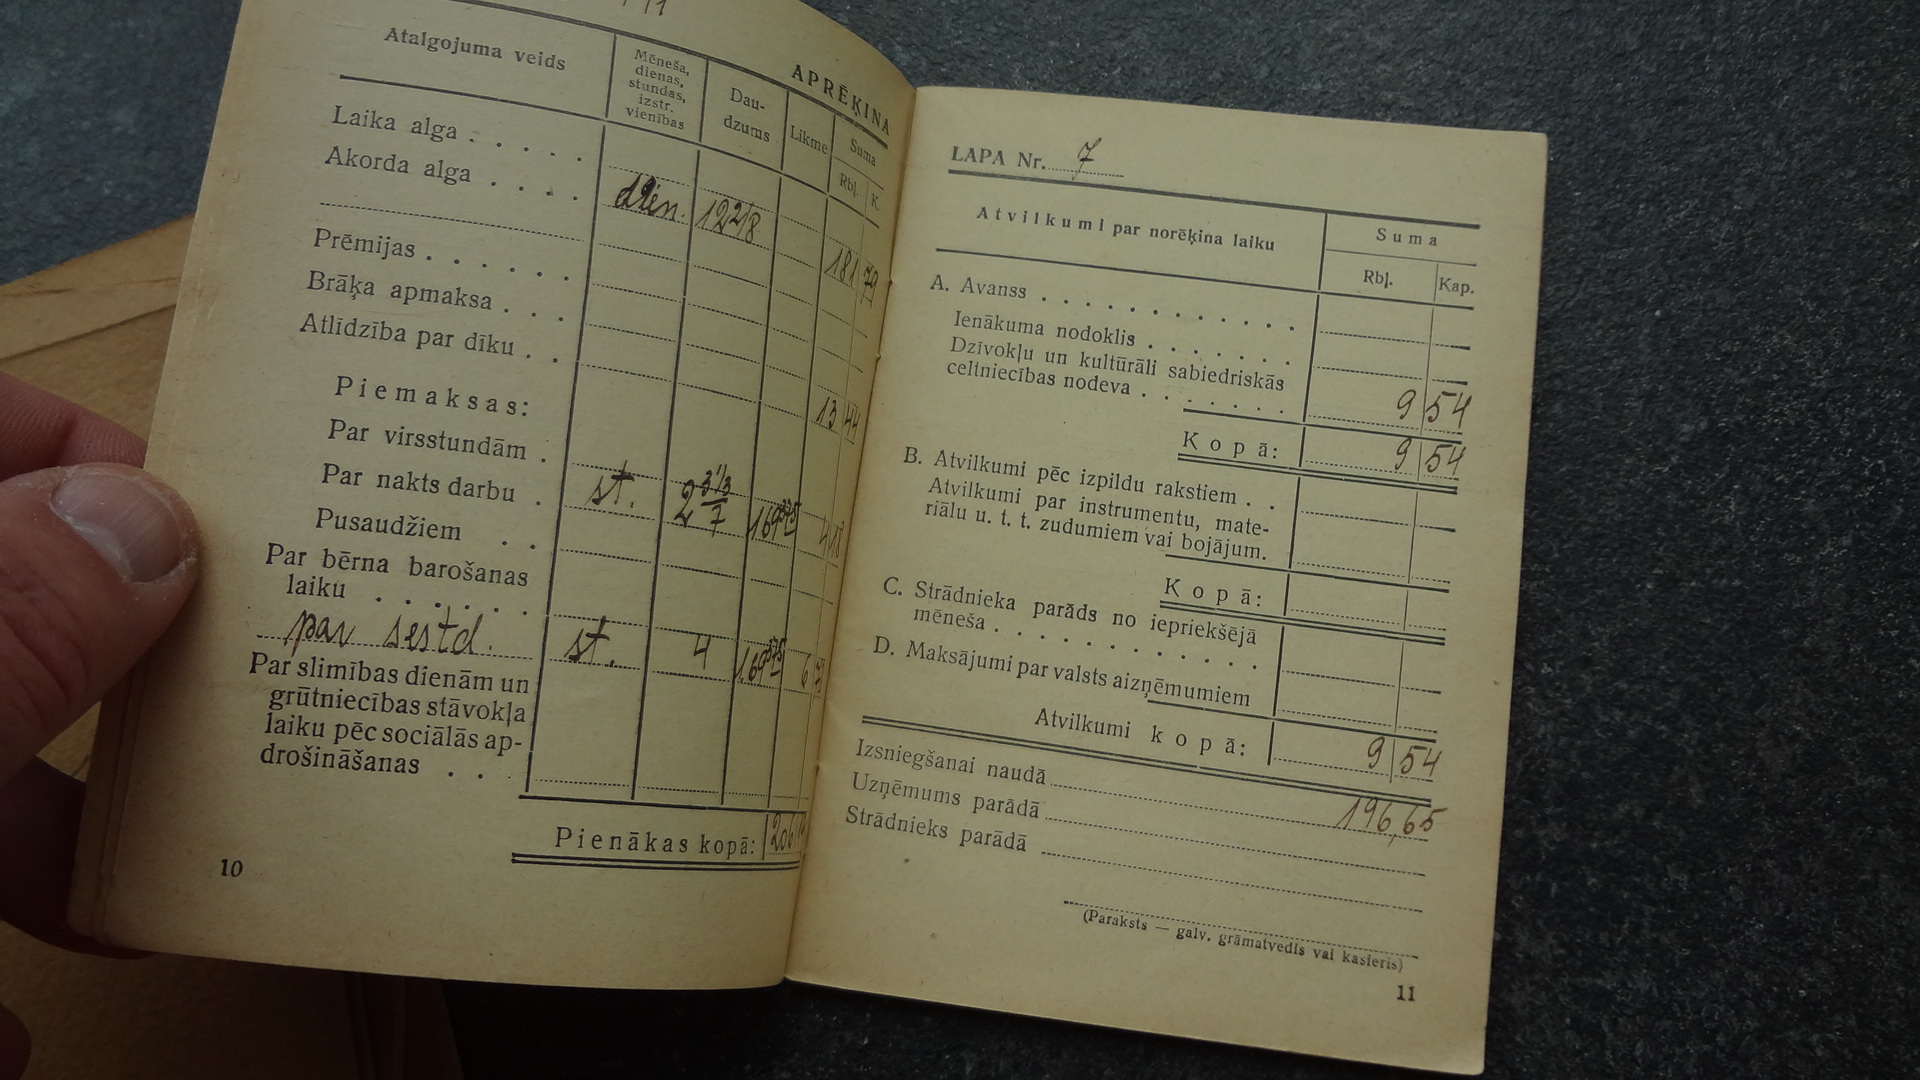 APRĒĶINA
Atalgojuma veids
Mēneša,
dienas,
stundas,
izstr.
vienības
Dau-
dzums
Likme
Suma
Rbļ. K.
Laika alga . . . . .
Akorda alga . . . . dien. 12 2/8 181 79
Prēmijas . . . . . .
Brāķa apmaksa . . .
Atlīdzība par dīku . . 13 44
Piemaksas:
Par virsstundām .
Par nakts darbu . st. 1,69375 4 18
Pusaudžiem . .
Par bērna barošanas
laiku . . . . . .
par sestd. st. 4 1,69375 6
Par slimības dienām un
grūtniecības stāvokļa
laiku pēc sociālās ap-
drošināšanas . . .
Pienākas kopā: 206
10
LAPA Nr. 7
Atvilkumi par norēķina laiku
Suma
Rbļ. Kap.
A. Avanss . . . . . . . . . . .
Ienākuma nodoklis . . . . . . .
Dzīvokļu un kultūrāli sabiedriskās
celtniecības nodeva . . . . . . . 9 54
Kopā: 9 54
B. Atvilkumi pēc izpildu rakstiem . .
Atvilkumi par instrumentu, mate-
riālu u. t. t. zudumiem vai bojājum.
Kopā:
C. Strādnieka parāds no iepriekšējā
mēneša . . . . . . . . . . .
D. Maksājumi par valsts aizņēmumiem
Atvilkumi kopā: 9 54
Izsniegšanai naudā 196,65
Uzņēmums parādā
Strādnieks parādā
(Paraksts — galv. grāmatvedis vai kasieris)
11